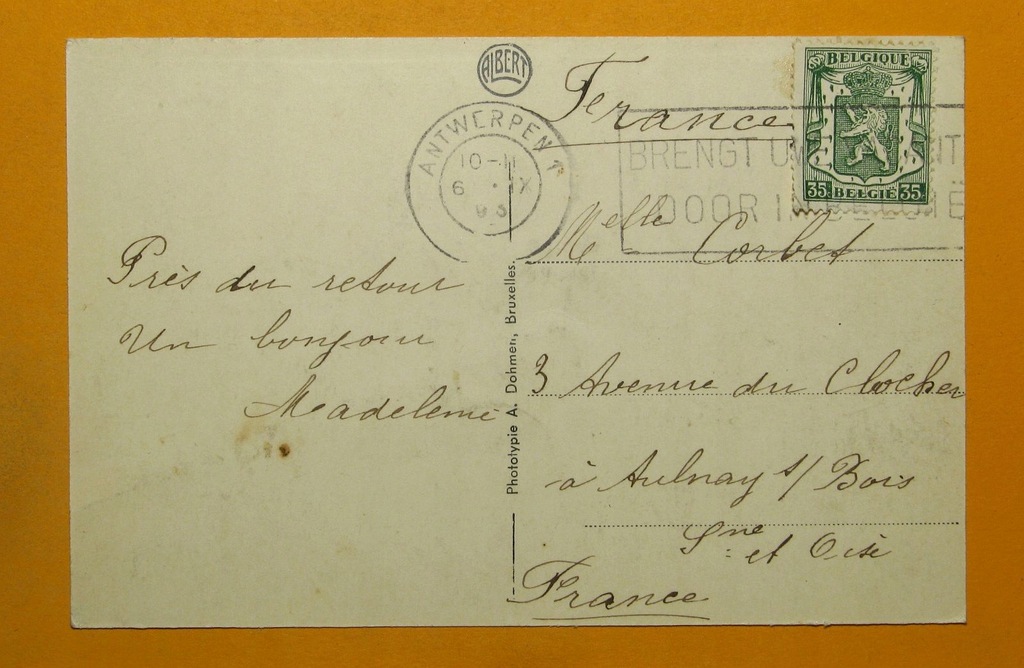 ALBERT
France
BELGIQUE
35 BELGIE 35
ANTWERPEN 1
10-11
6 IX
BRENGT UW
DOOR IN BELGIË
Melle Corbet
Près du retour
Un bonjour
Madeleine
Phototypie A. Dohmen, Bruxelles
3 Avenue du Clocher
à Aulnay s/ Bois
Sne et Oise
France